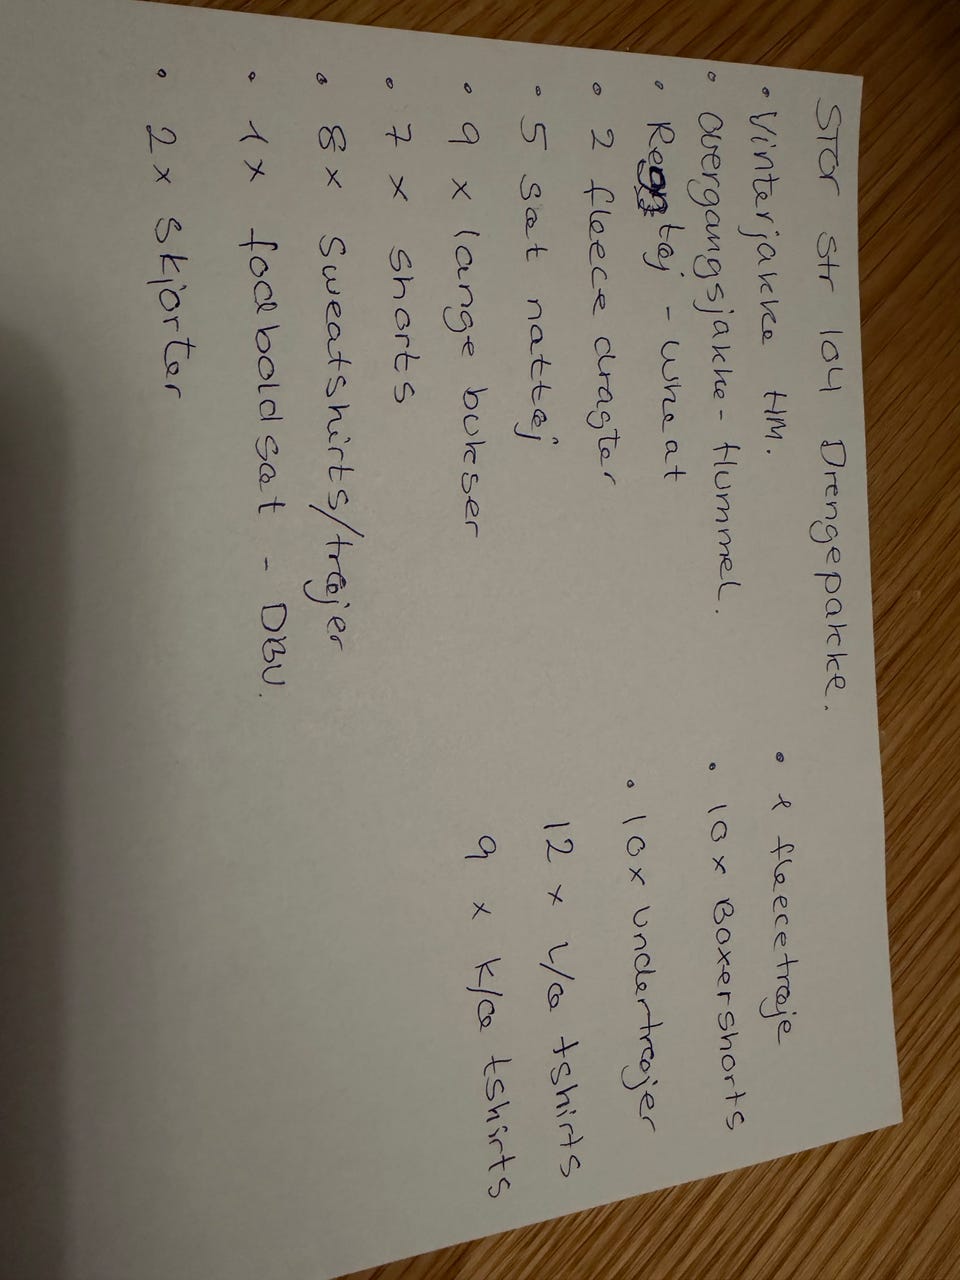 Stor str 104 Drengepakke.
• Vinterjakke HM.
• Overgangsjakke - Hummel.
• Regntøj - wheat
• 2 fleece dragter
• 5 sæt nattøj
• 9 x lange bukser
• 7 x shorts
• 8 x Sweatshirts/trøjer
• 1 x fodboldsæt - DBU.
• 2 x skjorter
• 1 fleecetrøje
• 10 x Boxershorts
• 10 x undertrøjer
12 x L/æ tshirts
9 x k/æ tshirts